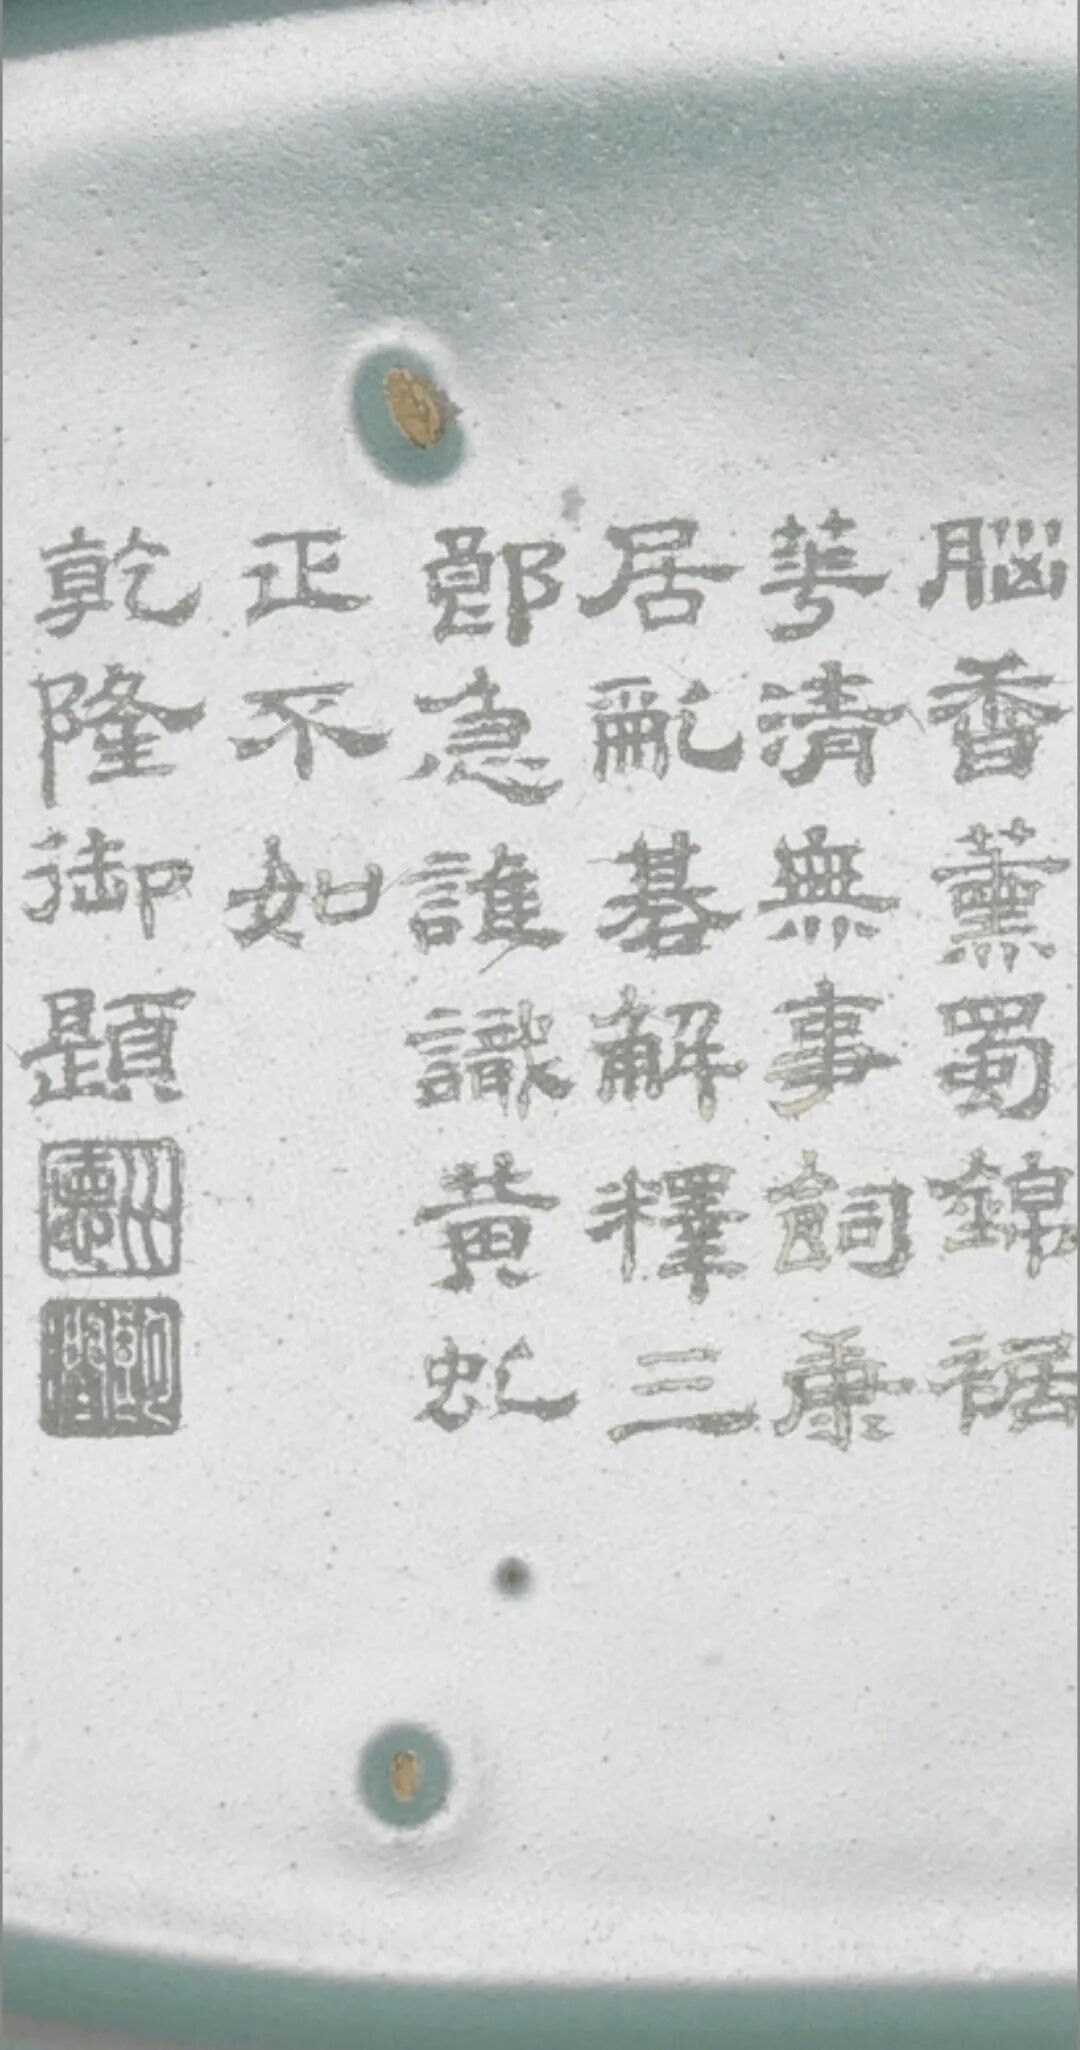 腦香薰蜀錦裾
華清無事飼康
居亂碁解釋三
郎急誰識黃虬
正不如
乾隆御題